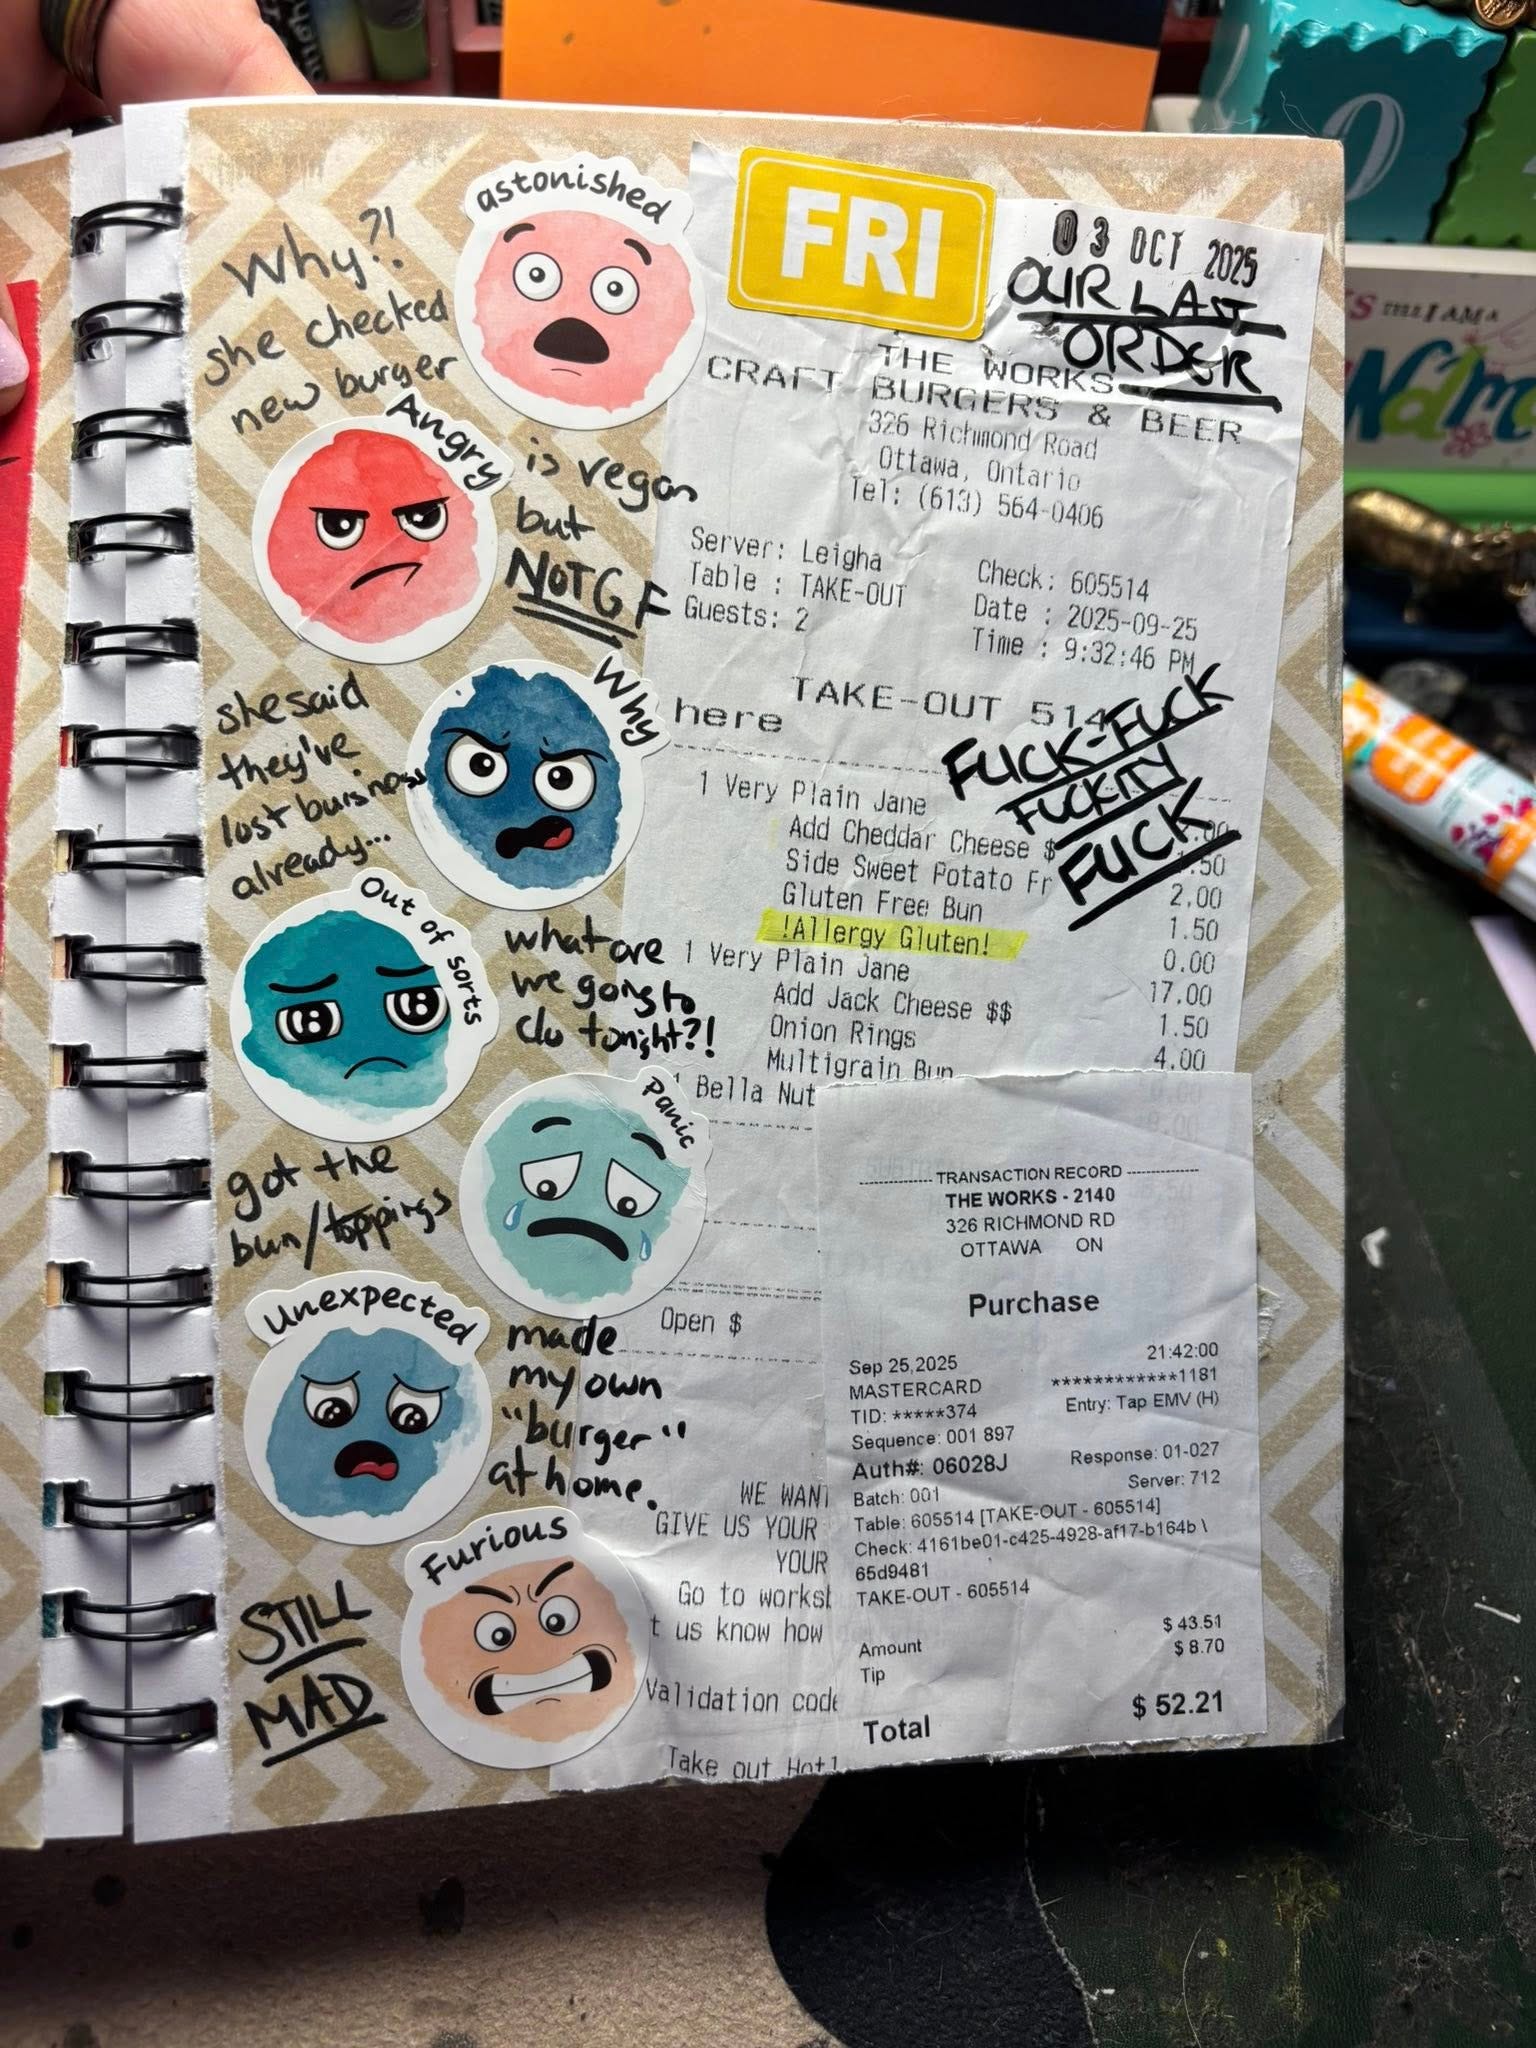 Why?!
she checked
new burger
astonished
Angry
is vegan
but
NOT GF
she said
they've
lost buisness
already...
Why
Out of sorts
what are
we going to
do tonight?!
Panic
got the
bun/toppings
Unexpected
made
my own
"burger"
at home.
STILL
MAD
Furious
FRI
03 OCT 2025
OUR LAST
ORDER
THE WORKS
CRAFT BURGERS & BEER
326 Richmond Road
Ottawa, Ontario
Tel: (613) 564-0406
Server: Leigha Check: 605514
Table : TAKE-OUT Date : 2025-09-25
Guests: 2 Time : 9:32:46 PM
TAKE-OUT 514
here
FUCK-FUCK
FUCKITY
FUCK
1 Very Plain Jane
Add Cheddar Cheese $
Side Sweet Potato Fr .50
Gluten Free Bun 2.00
!Allergy Gluten! 1.50
1 Very Plain Jane 0.00
Add Jack Cheese $$ 17.00
Onion Rings 1.50
Multigrain Bun 4.00
1 Bella Nut
Open $
WE WANT
GIVE US YOUR
YOUR
Go to worksb
t us know how
Validation code
Take out Hotl
TRANSACTION RECORD
THE WORKS - 2140
326 RICHMOND RD
OTTAWA ON
Purchase
Sep 25,2025 21:42:00
MASTERCARD ************1181
TID: *****374 Entry: Tap EMV (H)
Sequence: 001 897
Auth#: 06028J Response: 01-027
Batch: 001 Server: 712
Table: 605514 [TAKE-OUT - 605514]
Check: 4161be01-c425-4928-af17-b164b \
65d9481
TAKE-OUT - 605514
Amount $ 43.51
Tip $ 8.70
Total $ 52.21